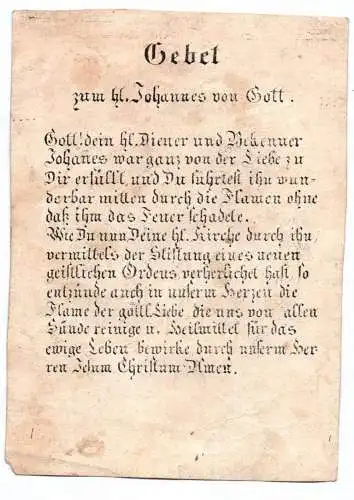 Gebet
zum hl. Johannes von Gott.
Gott! dein hl. Diener und Bekenner
Johanes war ganz von der Liebe zu
Dir erfüllt, und Du führtest ihn wun-
derbar mitten durch die Flamen ohne
daß ihm das Feuer schadete.
Wie Du nun Deine hl. Kirche durch ihn,
vermittels der Stiftung eines neuen
geistlichen Ordens verherlichet hast so
entzünde auch in unserm Herzen die
Flame der göttl. Liebe die uns von allen
Sünde reinige u. Heilmittel für das
ewige Leben bewirke durch unserm Her
ren Jesum Christum Amen.